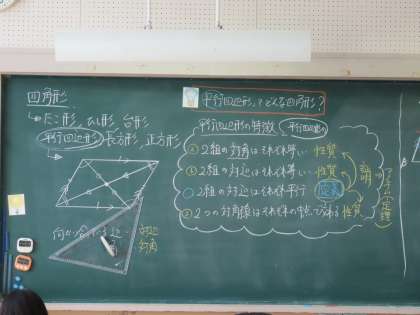 四角形
→たこ形, ひし形, 台形
平行四辺形, 長方形, 正方形
向かい合っている辺…対辺
対角
平行四辺形って、どんな四角形?
平行四辺形の特徴
平行四辺形の
2組の対角はそれぞれ等しい 性質
2組の対辺はそれぞれ等しい 性質
2組の対辺はそれぞれ平行 定義
2つの対角線はそれぞれの中点で交わる 性質
証明
アイテム(定理)